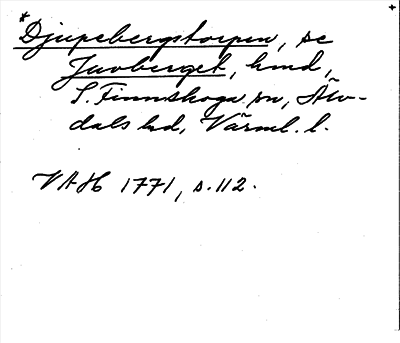 *Djupebergstorpen, se
Juvberget, hmd,
S. Finnskoga sn, Älv-
dals hd, Värml. l.
VAH 1771, s. 112.